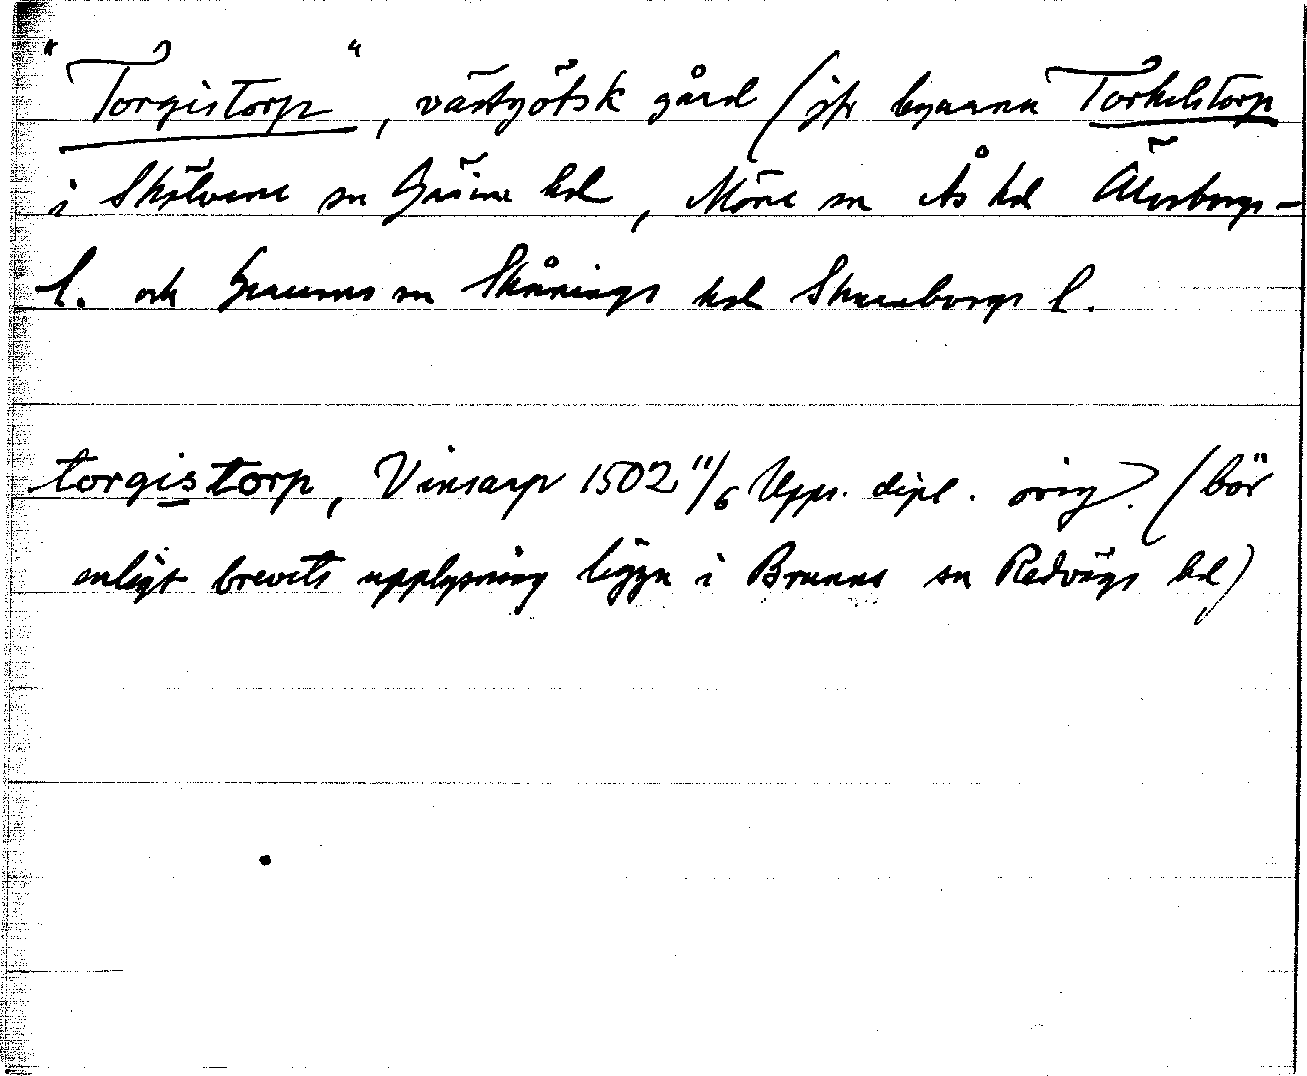 "Torgistorp", västgötsk gård (jfr byarna Torkelstorp
i Skölvene sn Gäsene hd, Möne sn Ås hd Älvsborgs-
l. och sn Skånings hd Skaraborgs l.
torgistorp, Vinsarp 1502 11/6 Upps. dipl. orig. (bör
enligt brevets upplysning ligga i Brunns sn Redvägs hd)